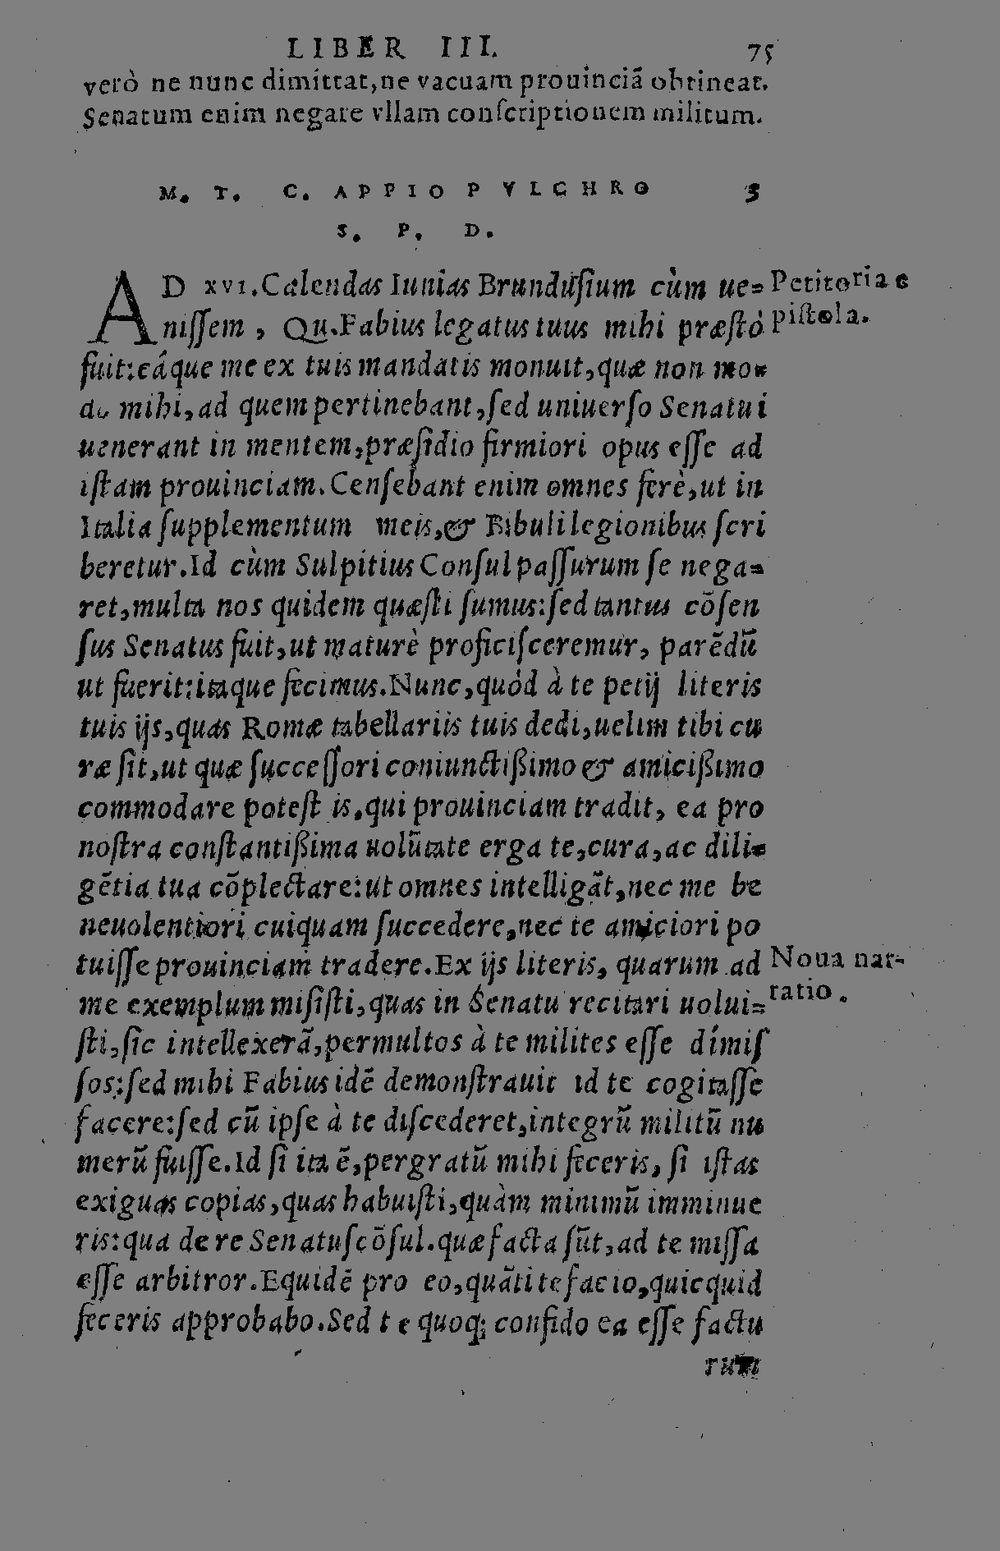 LIBER III. 75
verò ne nunc dimittat, ne vacuam prouinciā obtineat.
Senatum enim negare vllam conscriptionem militum.
M. T. C. APPIO PVLCHRO 3
S. P. D.
AD XVI. Calendas Iunias Brundusium cùm ue= Petitoria e
nissem, Qu. Fabius legatus tuus mihi præstò pistola.
fuit: eáque me ex tuis mandatis monuit, quæ non mo=
do mihi, ad quem pertinebant, sed uniuerso Senatui
uenerant in mentem, præsidio firmiori opus esse ad
istam prouinciam. Censebant enim omnes ferè, ut in
Italia supplementum meis, & Bibuli legionibus scri
beretur. Id cùm Sulpitius Consul passurum se nega=
ret, multa nos quidem quæsti sumus: sed tantus cōsen
sus Senatus fuit, ut maturè proficisceremur, parēdū
ut fuerit: itaque fecimus. Nunc, quòd à te petij literis
tuis ijs, quas Romæ tabellariis tuis dedi, uelim tibi cu
ræ sit, ut quæ successori coniunctißimo & amicißimo
commodare potest is, qui prouinciam tradit, ea pro
nostra constantißima uolūtate erga te, cura, ac dili=
gētia tua cōplectare: ut omnes intelligāt, nec me be
neuolentiori cuiquam succedere, nec te amiciori po
tuisse prouinciam tradere. Ex ijs literis, quarum ad Noua nar-
me exemplum misisti, quas in Senatu recitari uolui= ratio.
sti, sic intellexerā, permultos à te milites esse dimis
sos: sed mihi Fabius idē demonstrauit id te cogitasse
facere: sed cū ipse à te discederet, integrū militū nu
merū fuisse. Id si ita ē, pergratū mihi feceris, si istas
exiguas copias, quas habuisti, quàm minimū imminue
ris: qua de re Senatuscōsul. quæ facta sūt, ad te missa
esse arbitror. Equidē pro eo, quāti te facio, quicquid
feceris approbabo. Sed te quoq; confido ea esse factu
rum